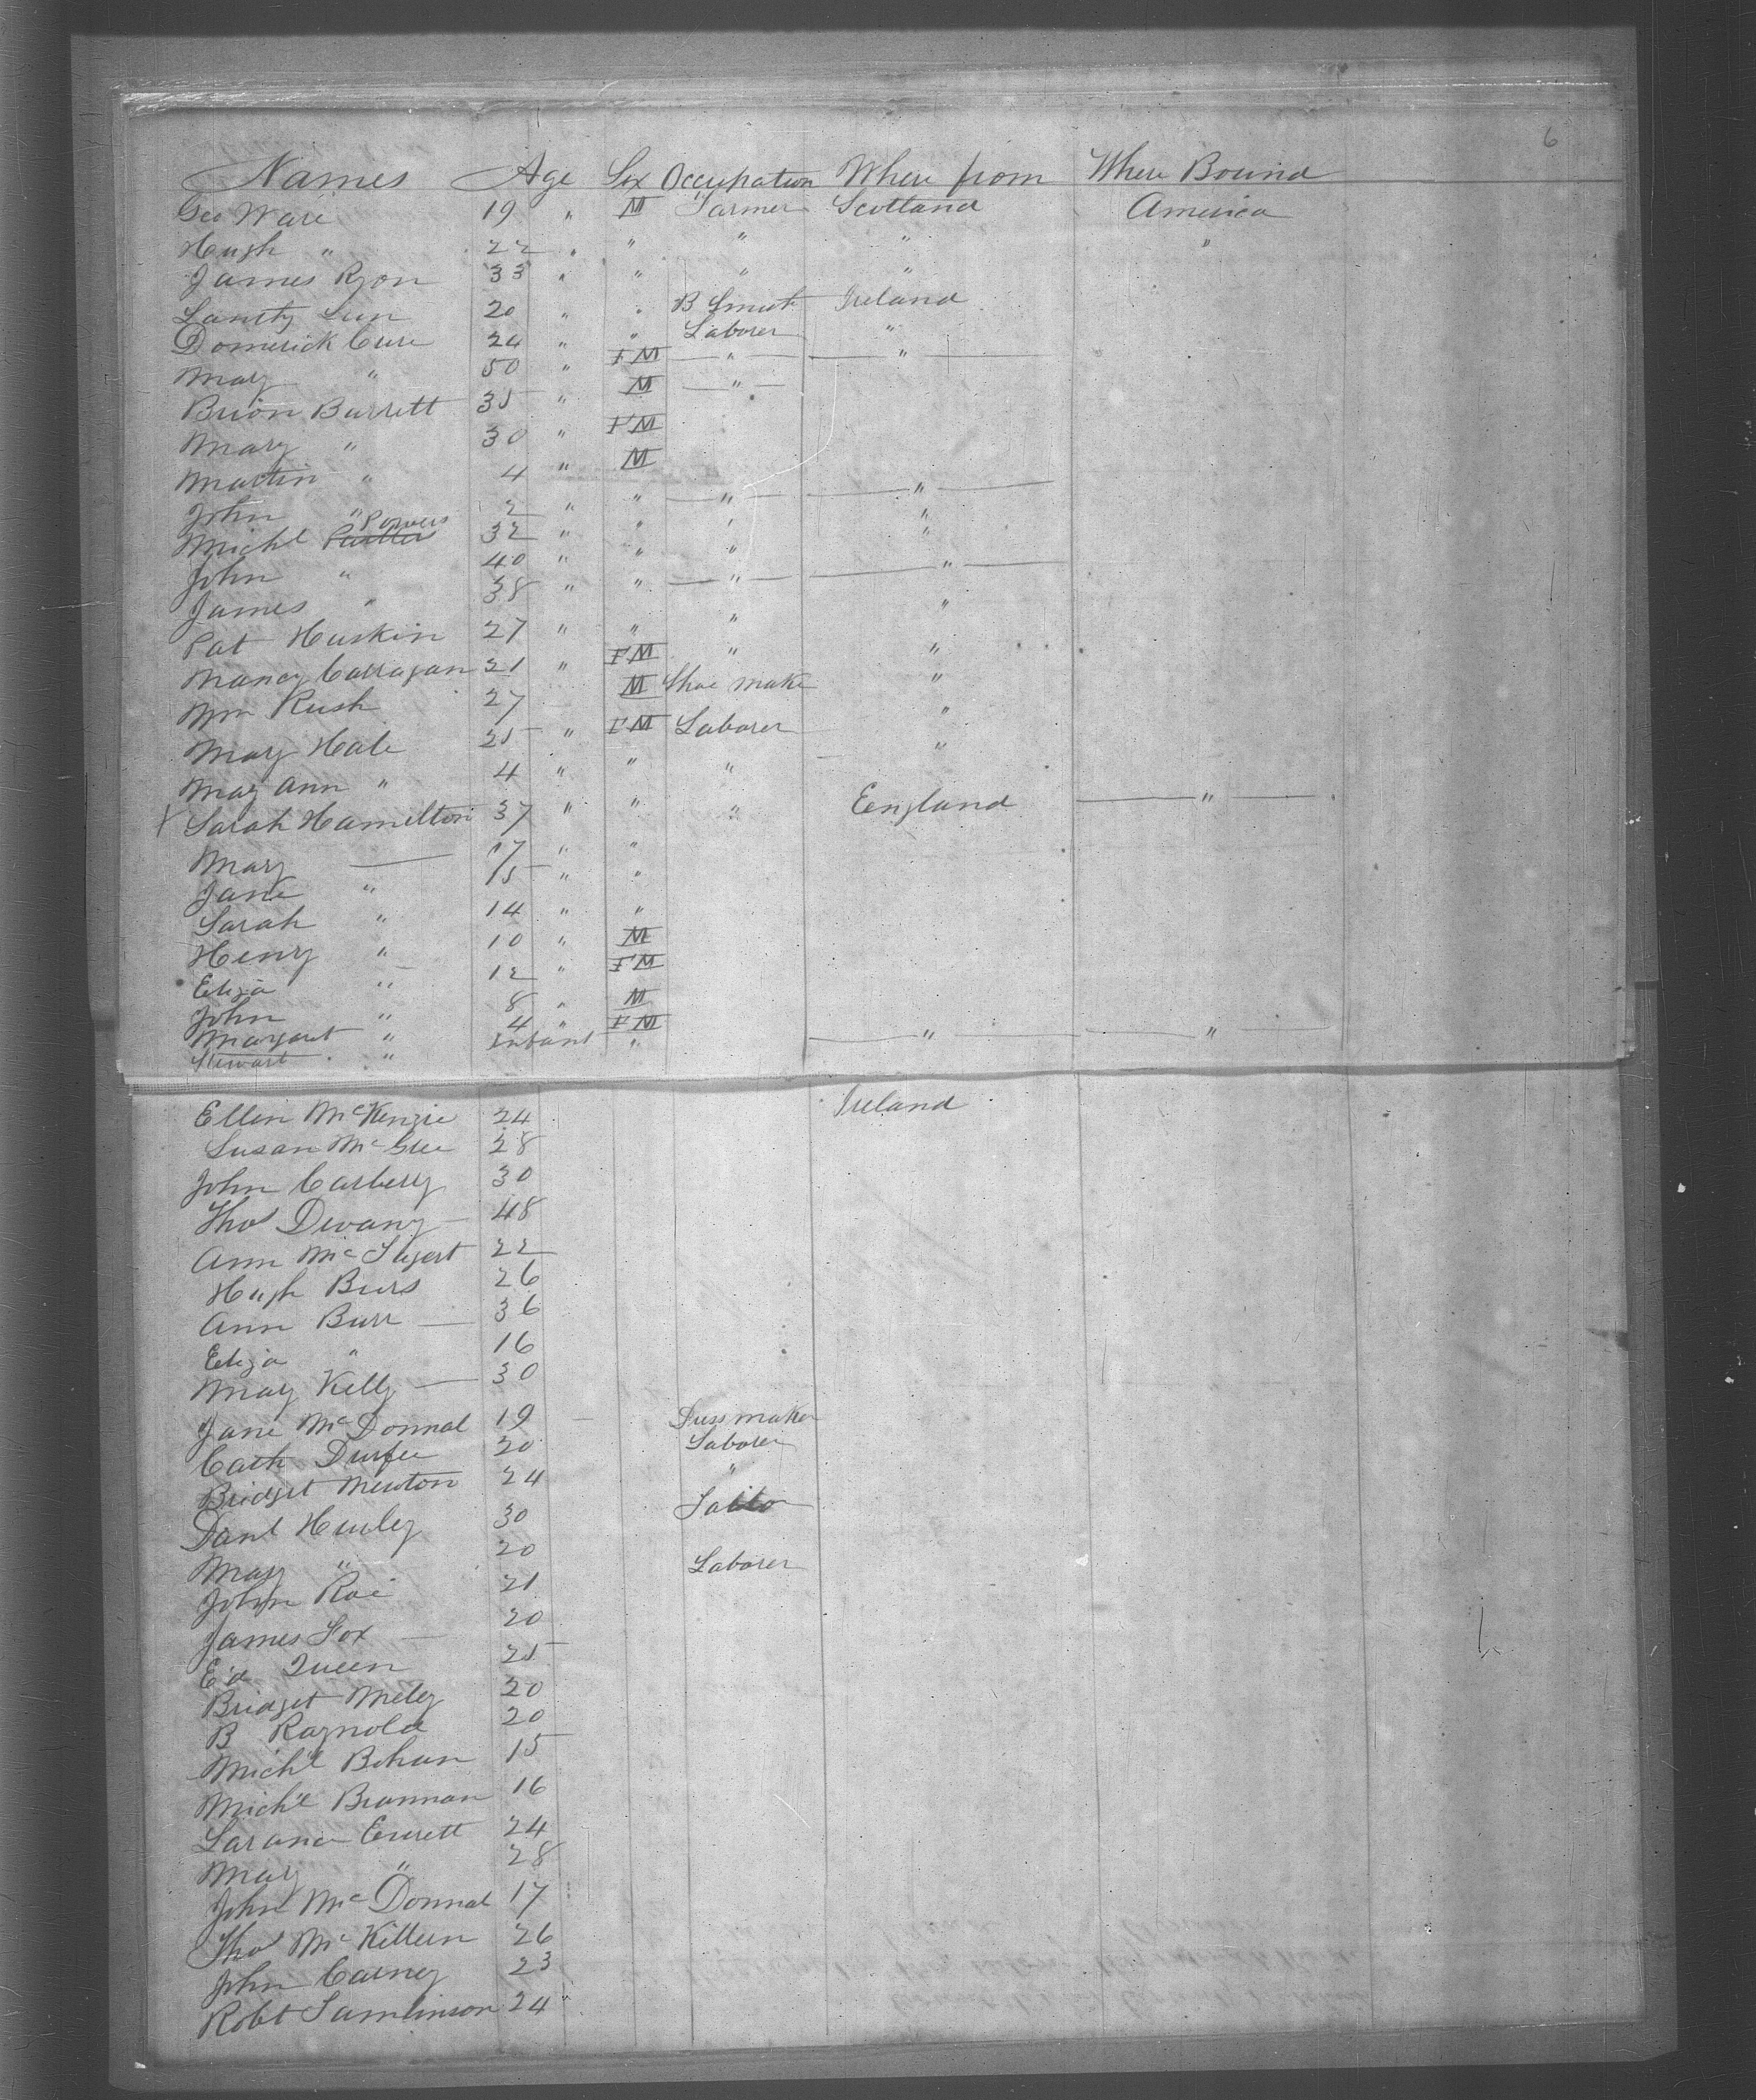 6
Names Age Sex Occupation Where from Where Bound
Geo Ware 19 " M Farmer Scotland America
Hugh " 22 " " " " "
James Ryon 33 " " " "
Lanty 20 " " B Smith Ireland
Domerick Cure 24 " " Laborer "
Mary " 50 " FM " "
Brion Barrett 35 " M "
Mary " 30 " FM
Martin " 4 " M
John " 2 " " " "
Michl Powers 32 " " " "
John " 40 " " " "
James " 38 " " " "
Pat Huskin 27 " " " "
Nancy Carragan 21 " FM " "
Wm Rush 27 M Shoe make "
Mary Hale 25 " FM Laborer "
May Ann " 4 " " " "
X Sarah Hamelton 37 " " " Eengland "
Mary 17 " "
Jane " 15 " "
Sarah " 14 " "
Henry " 10 " M
Eliza " 12 " FM
John " 8 " M
Margaret " 4 " FM
Stewart " Infant " " "
Ellen McKenzie 24 Ireland
Susan McGee 28
John Carbery 30
Thos Devany 48
Ann Mc 22
Hugh Burs 26
Ann Burr 36
Eliza " 16
May Kelly 30
Jane McDonnal 19 Dressmaker
Cath Durfee 20 Laborer
Bridget Newton 24 "
Danl Hurley 30 Tailor
May " 20
John Roe 21 Laborer
James Fox 20
Ed Queen 25
Bridget Meley 20
B Raynold 20
Michl Bohan 15
Michl Brannan 16
Larance Everett 24
Mary " 28
John McDonnal 17
Thos McKilleen 26
John Carney 23
Robt Tamlinson 24 "